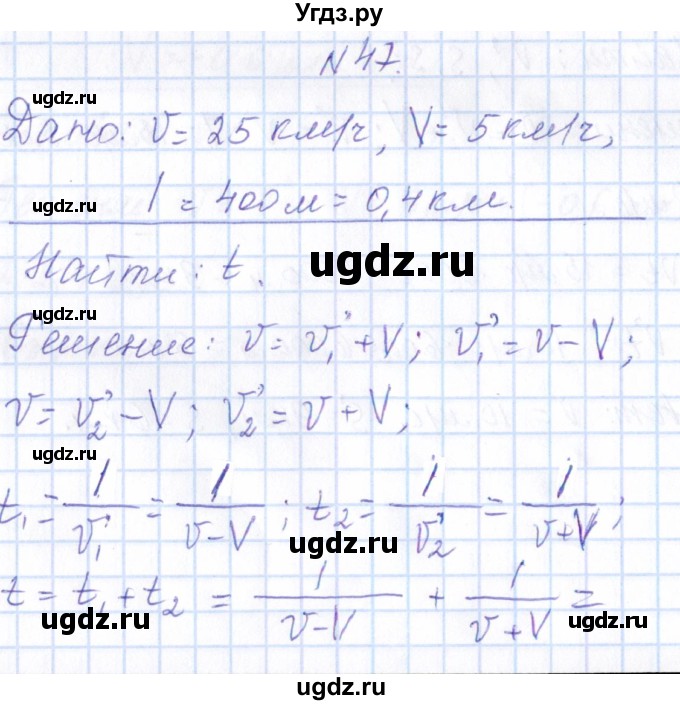 Угдз.ру
N 47.
ugdz.ru
Дано: v = 25 км/ч, V = 5 км/ч,
ugdz.ru l = 400 м = 0,4 км.
Найти: t. ugdz.ru
ugdz.ru
Решение: v = v₁' + V; v₁' = v - V;
v = v₂' - V; v₂' = v + V;
ugdz.ru
t₁ = l/v₁' = l/(v-V); t₂ = l/v₂' = l/(v+V);
ugdz.ru ugdz.ru
t = t₁ + t₂ = l/(v-V) + l/(v+V) =
ugdz.ru ugdz.ru
ugdz.ru